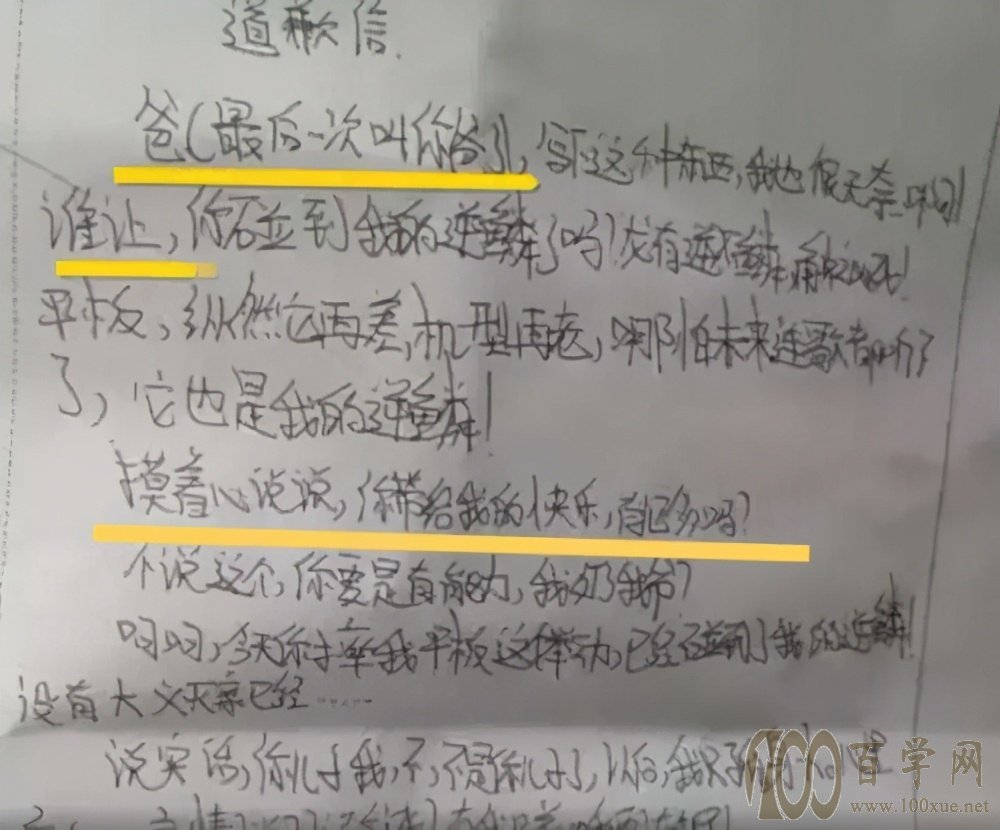 道歉信.
爸(最后一次叫你爸了),写下这种东西,我也很无奈,呵呵!
谁让,你碰到我的逆鳞了吗?龙有逆鳞,触之必死!
平板,纵然它再差,机型再老,哪怕未来连歌都听不
了,它也是我的逆鳞!
摸着心说说,你带给我的快乐,有它多吗?
不说这个,你要是有能力,我奶我爷?
呵呵,今天你摔我平板这举动,已经碰到了我的逆鳞!
没有大义灭亲已经……
说实话,你儿子我,不,不是你儿子了,以后,我只
100百学网
www.100xue.net